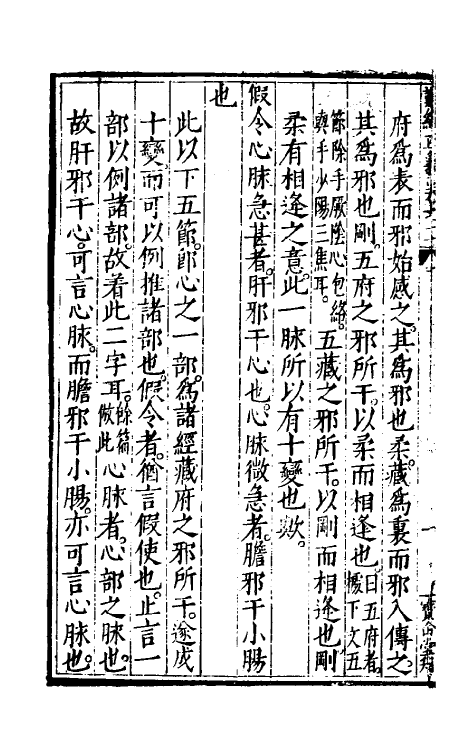 府爲表而邪始感之。其爲邪也柔。藏爲裏而邪入傳之。
其爲邪也剛。五府之邪所干。以柔而相逢也。曰五府者。據下文五
節。除手厥陰心包絡。與手少陽三焦耳。五藏之邪所干。以剛而相逢也。剛
柔有相逢之意。此一脉所以有十變也歟。
假令心脉急甚者。肝邪干心也。心脉微急者。膽邪干小腸
也
此以下五節。郎心之一部。爲諸經藏府之邪所干。遂成
十變而可以例推諸部也。假令者。猶言假使也。止言一
部以例諸部。故着此二字耳。餘篇倣此心脉者。心部之脉也。
故肝邪干心。可言心脉。而膽邪干小腸。亦可言心脉也。